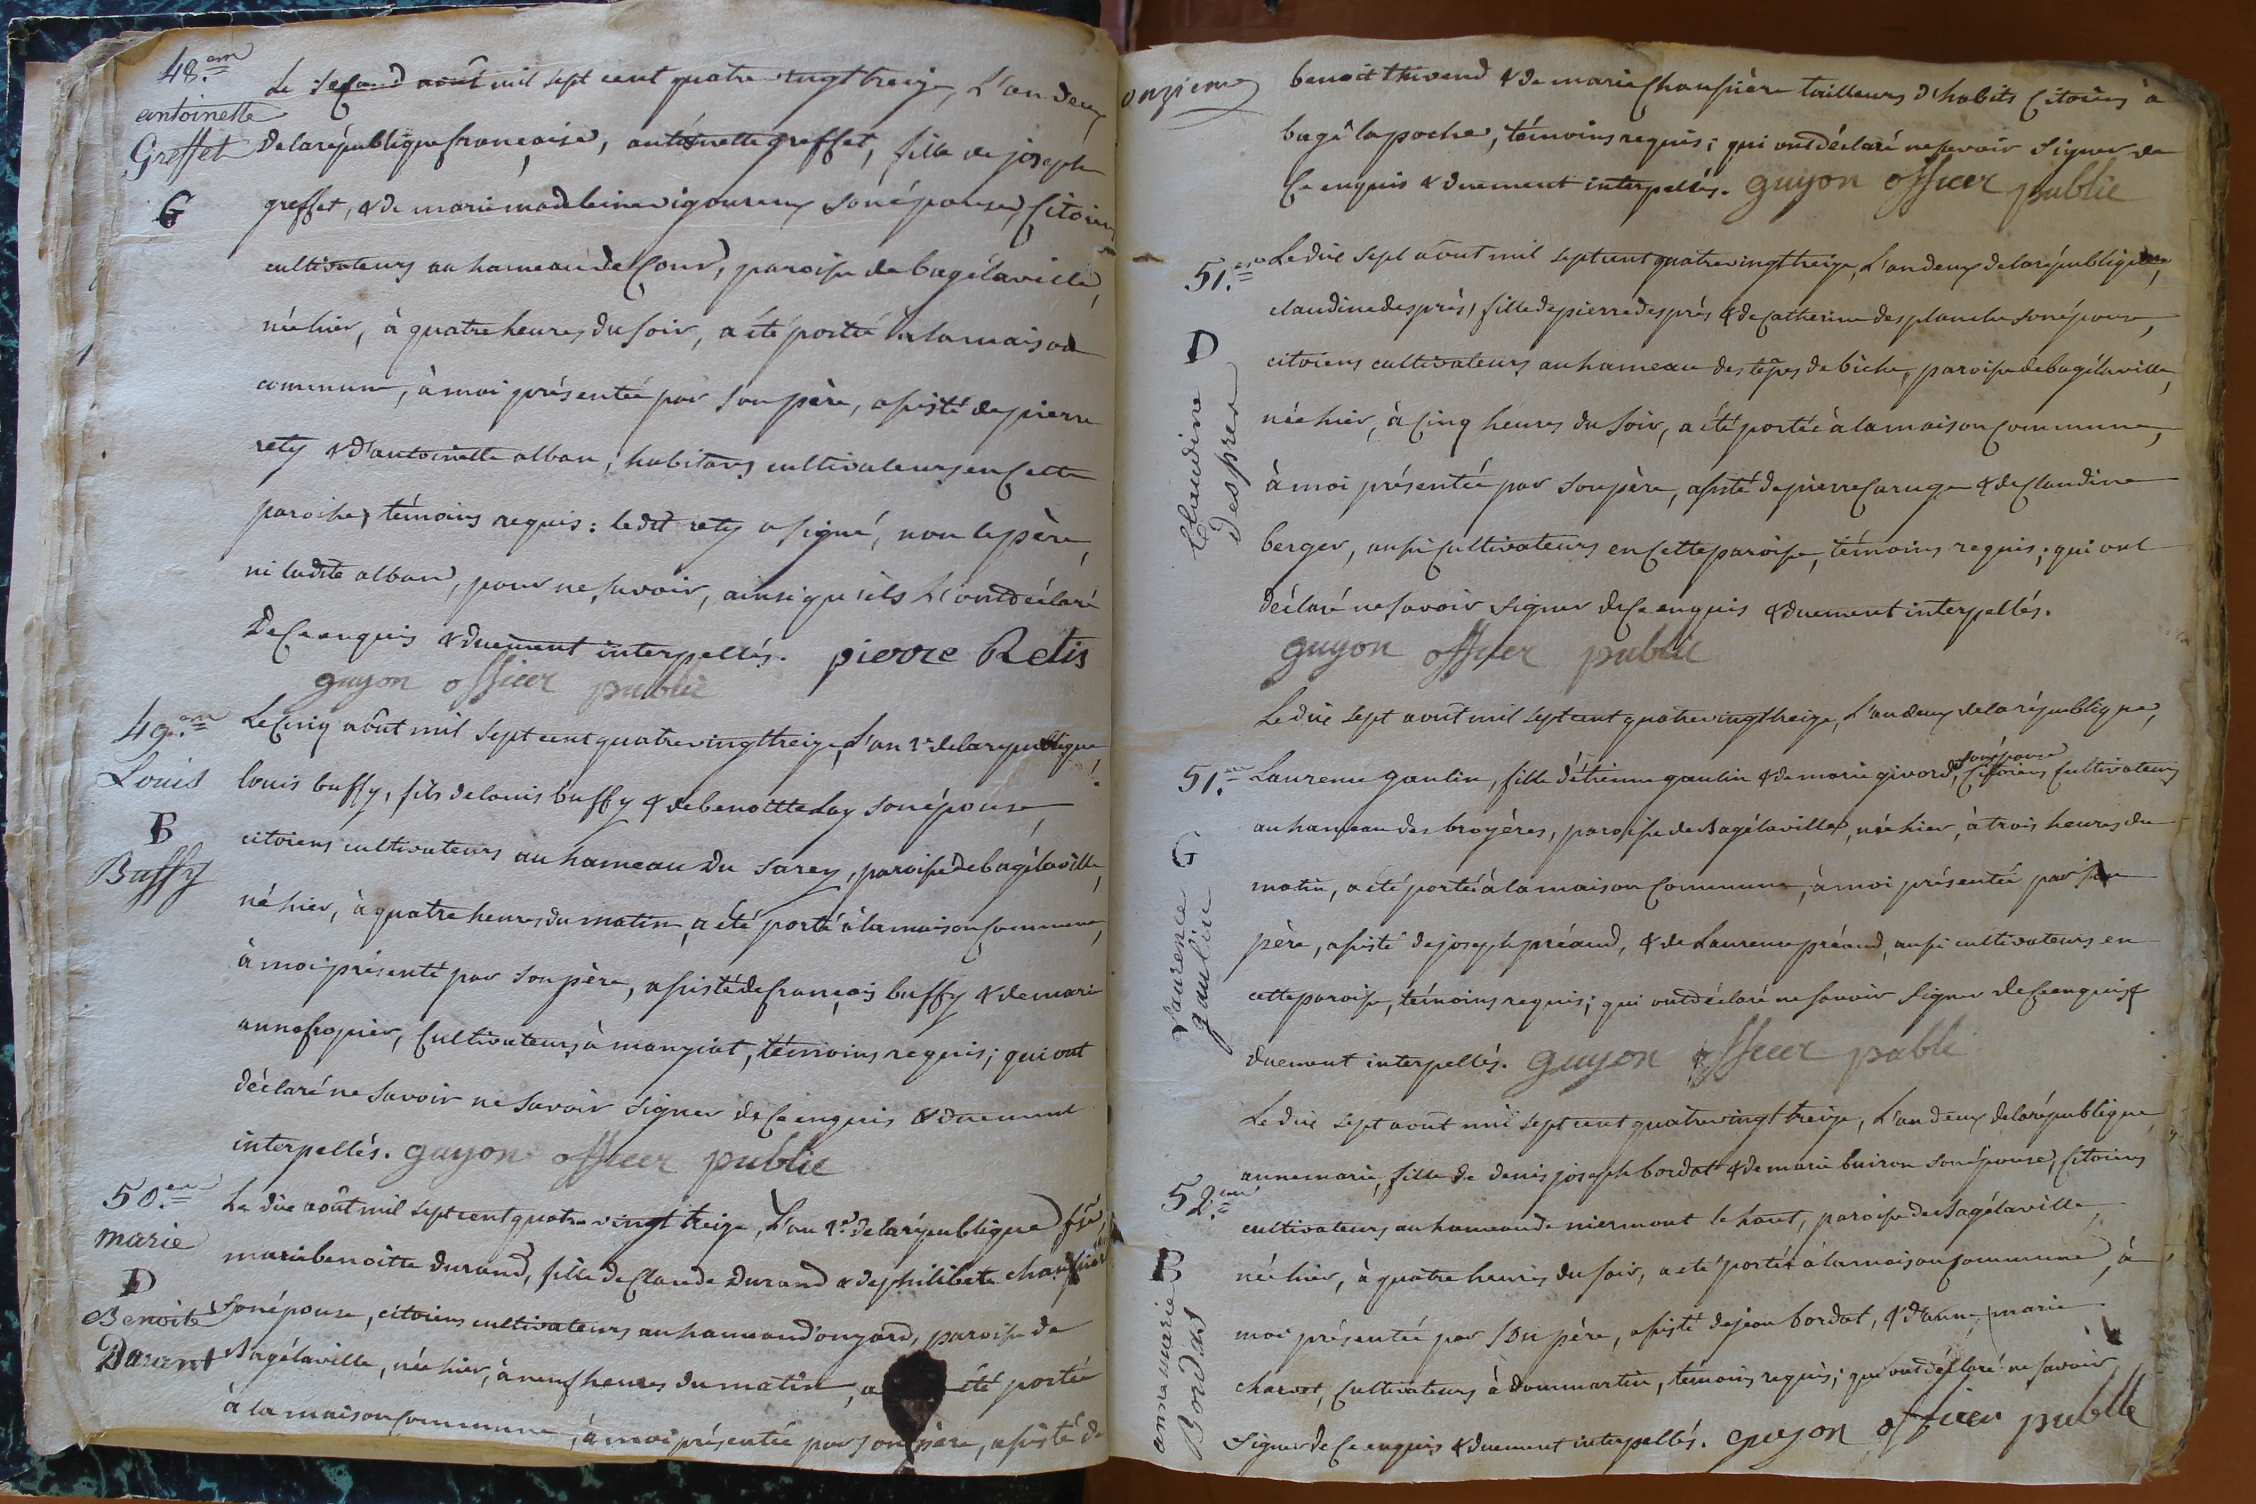 48.em
antoinette
Greffet
G
Le second août mil sept cent quatrevingt treize, L'an deux
de la république françoise, antoinette greffet, fille de joseph
greffet, & de marie madeleine vigoureux son épouse, Citoiens
cultivateurs au hameau de Cour, paroisse de bagélaville,
née hier, à quatre heures du soir, a été portée à la maison
commune, à moi présentée par son père, assisté de pierre
rety & d'antoinette alban, habitans cultivateurs en Cette
paroisse, témoins requis: ledit rety a signé, non le père,
ni ladite alban, pour ne savoir, ainsi qu'ils L'ont déclaré
de Ce enquis & duement interpellés. pierre Retis
guyon officer public
49.em
Louis
B
Buffy
Le Cinq août mil sept cent quatrevingt treize, L'an 2e de la république,
louis buffy, fils de louis buffy & de benoitte Lay son épouse,
citoiens cultivateurs au hameau du sarey, paroisse de bagélaville,
né hier, à quatre heures du matin, a été porté à la maison Commune,
à moi présenté par son père, assisté de françois buffy & de marie
anne Cultivateurs à manziat, témoins requis; qui ont
déclaré ne savoir ne savoir signer de Ce enquis & duement
interpellés. guyon officer public
50.em
marie
D
Benoite
Durand
Le dix août mil sept cent quatre vingt treize, L'an 2e de la république
marie benoitte durand, fille de Claude Durand & de philiberte chaussière
son épouse, citoiens cultivateurs au hameau paroisse de
Bagélaville, née hier, à neuf heures du matin, a été portée
à la maison Commune, à moi présentée par son père, assisté de
onzieme
benoit thivend & de marie Chaussière tailleurs d'habits Citoiens à
bagé la poche, témoins requis; qui ont déclaré ne savoir signer de
Ce enquis & duement interpellés. guyon officer public
51.em
D
Claudine
Despres
Le dix sept août mil sept cent quatrevingt treize, L'an deux de la république,
claudine després, fille de pierre després & de Catherine desplanche son épouse,
citoiens cultivateurs au hameau des de biche, paroisse de bagélaville,
née hier, à Cinq heures du soir, a été portée à la maison Commune,
à moi présentée par son père, assisté de pierre Caruge & de Claudine
berger, aussi Cultivateurs en Cette paroisse, témoins requis; qui ont
déclaré ne savoir signer de Ce enquis & duement interpellés.
guyon officer public
51.em
G
Laurence
gaulin
Le dix sept août mil sept cent quatrevingt treize, L'an deux de la république,
Laurence gaulin, fille d'étienne gaulin & de marie givord, son épouse Citoiens Cultivateurs
au hameau des broyères, paroisse de Bagélaville, née hier, à trois heures du
matin, a été portée à la maison Commune, à moi présentée par son
père, assisté de joseph préaud, & de Laurence préaud, aussi cultivateurs en
cette paroisse, témoins requis; qui ont déclaré ne savoir signer de Ce enquis &
duement interpellés. guyon officer publi
52.em
B
anne marie
Bordat
Le dix sept août mil sept cent quatrevingt treize, L'an deux de la république,
anne marie, fille de denis joseph bordat & de marie buiron son épouse, Citoiens
cultivateurs au hameau de niermont le haut, paroisse de Bagélaville,
née hier, à quatre heures du soir, a été portée à la maison Commune, à
moi présentée par son père, assisté de jean bordat, & d'anne marie
charvet, Cultivateurs à dommartin, témoins requis; qui ont déclaré ne savoir
signer de Ce enquis & duement interpellés. guyon officer public